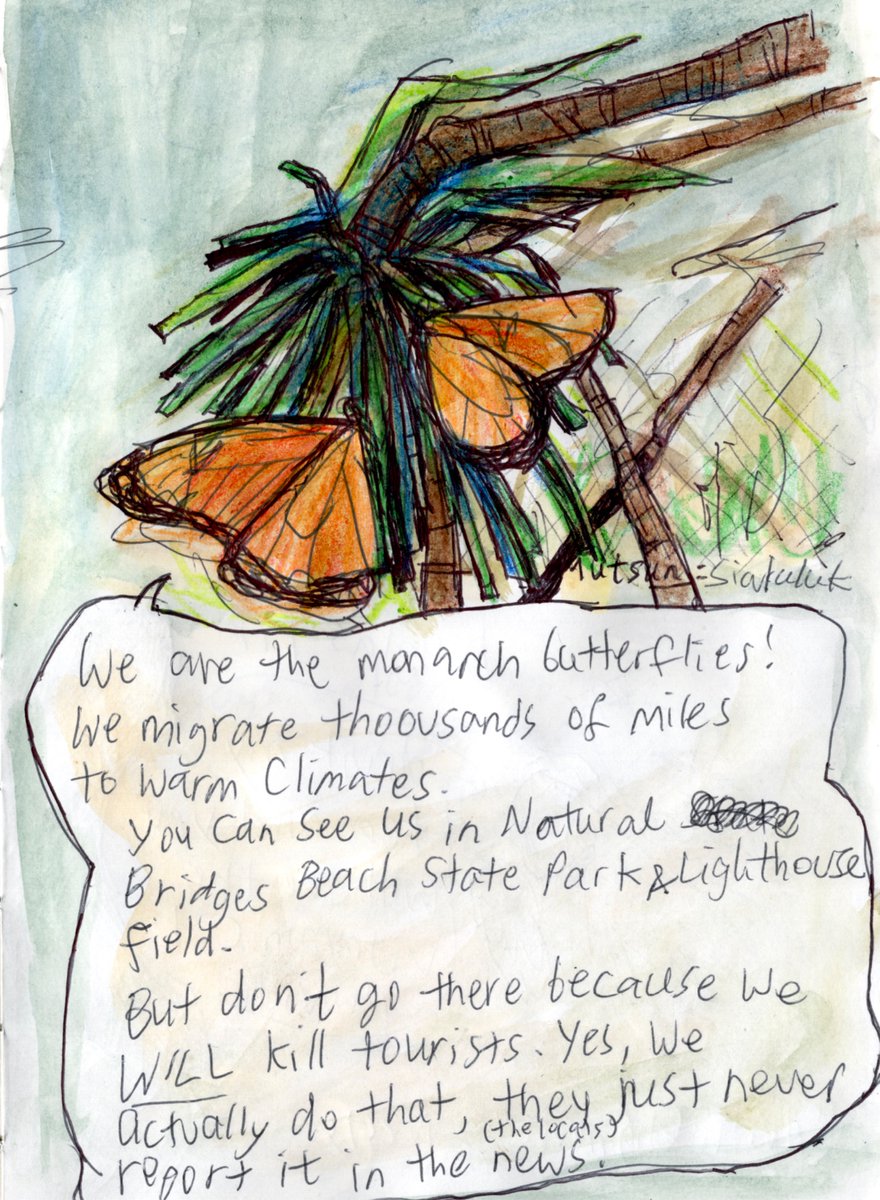 Mutsun = Siatukik
We are the monarch butterflies!
We migrate thoousands of miles
to warm Climates.
You can see us in Natural
Bridges Beach State Park & Lighthouse
field.
But don't go there because we
WILL kill tourists. Yes, we
actually do that, they just never
(the locals)
report it in the news.